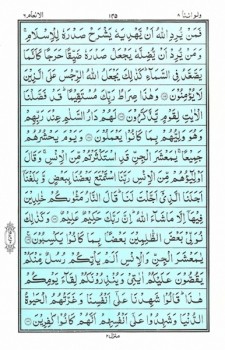 ولو اننا ٨ ١٣٥ الانعام ٦
فَمَنْ يُّرِدِ اللّٰهُ اَنْ يَّهْدِيَهٗ يَشْرَحْ صَدْرَهٗ لِلْاِسْلَامِ ۚ
وَمَنْ يُّرِدْ اَنْ يُّضِلَّهٗ يَجْعَلْ صَدْرَهٗ ضَيِّقًا حَرَجًا كَاَنَّمَا
يَصَّعَّدُ فِي السَّمَآءِ ؕ كَذٰلِكَ يَجْعَلُ اللّٰهُ الرِّجْسَ عَلَى الَّذِيْنَ
لَا يُؤْمِنُوْنَ ۝ وَهٰذَا صِرَاطُ رَبِّكَ مُسْتَقِيْمًا ؕ قَدْ فَصَّلْنَا
الْاٰيٰتِ لِقَوْمٍ يَّذَّكَّرُوْنَ ۝ لَهُمْ دَارُ السَّلٰمِ عِنْدَ رَبِّهِمْ
وَهُوَ وَلِيُّهُمْ بِمَا كَانُوْا يَعْمَلُوْنَ ۝ وَيَوْمَ يَحْشُرُهُمْ
جَمِيْعًا ۚ يٰمَعْشَرَ الْجِنِّ قَدِ اسْتَكْثَرْتُمْ مِّنَ الْاِنْسِ ۚ وَقَالَ
اَوْلِيٰٓؤُهُمْ مِّنَ الْاِنْسِ رَبَّنَا اسْتَمْتَعَ بَعْضُنَا بِبَعْضٍ وَّبَلَغْنَآ
اَجَلَنَا الَّذِيْٓ اَجَّلْتَ لَنَا ؕ قَالَ النَّارُ مَثْوٰىكُمْ خٰلِدِيْنَ
فِيْهَآ اِلَّا مَا شَآءَ اللّٰهُ ؕ اِنَّ رَبَّكَ حَكِيْمٌ عَلِيْمٌ ۝ وَكَذٰلِكَ
نُوَلِّيْ بَعْضَ الظّٰلِمِيْنَ بَعْضًا بِمَا كَانُوْا يَكْسِبُوْنَ ۝
يٰمَعْشَرَ الْجِنِّ وَالْاِنْسِ اَلَمْ يَاْتِكُمْ رُسُلٌ مِّنْكُمْ
يَقُصُّوْنَ عَلَيْكُمْ اٰيٰتِيْ وَيُنْذِرُوْنَكُمْ لِقَآءَ يَوْمِكُمْ
هٰذَا ؕ قَالُوْا شَهِدْنَا عَلٰٓى اَنْفُسِنَا وَغَرَّتْهُمُ الْحَيٰوةُ
الدُّنْيَا وَشَهِدُوْا عَلٰٓى اَنْفُسِهِمْ اَنَّهُمْ كَانُوْا كٰفِرِيْنَ ۝
منزل ٢